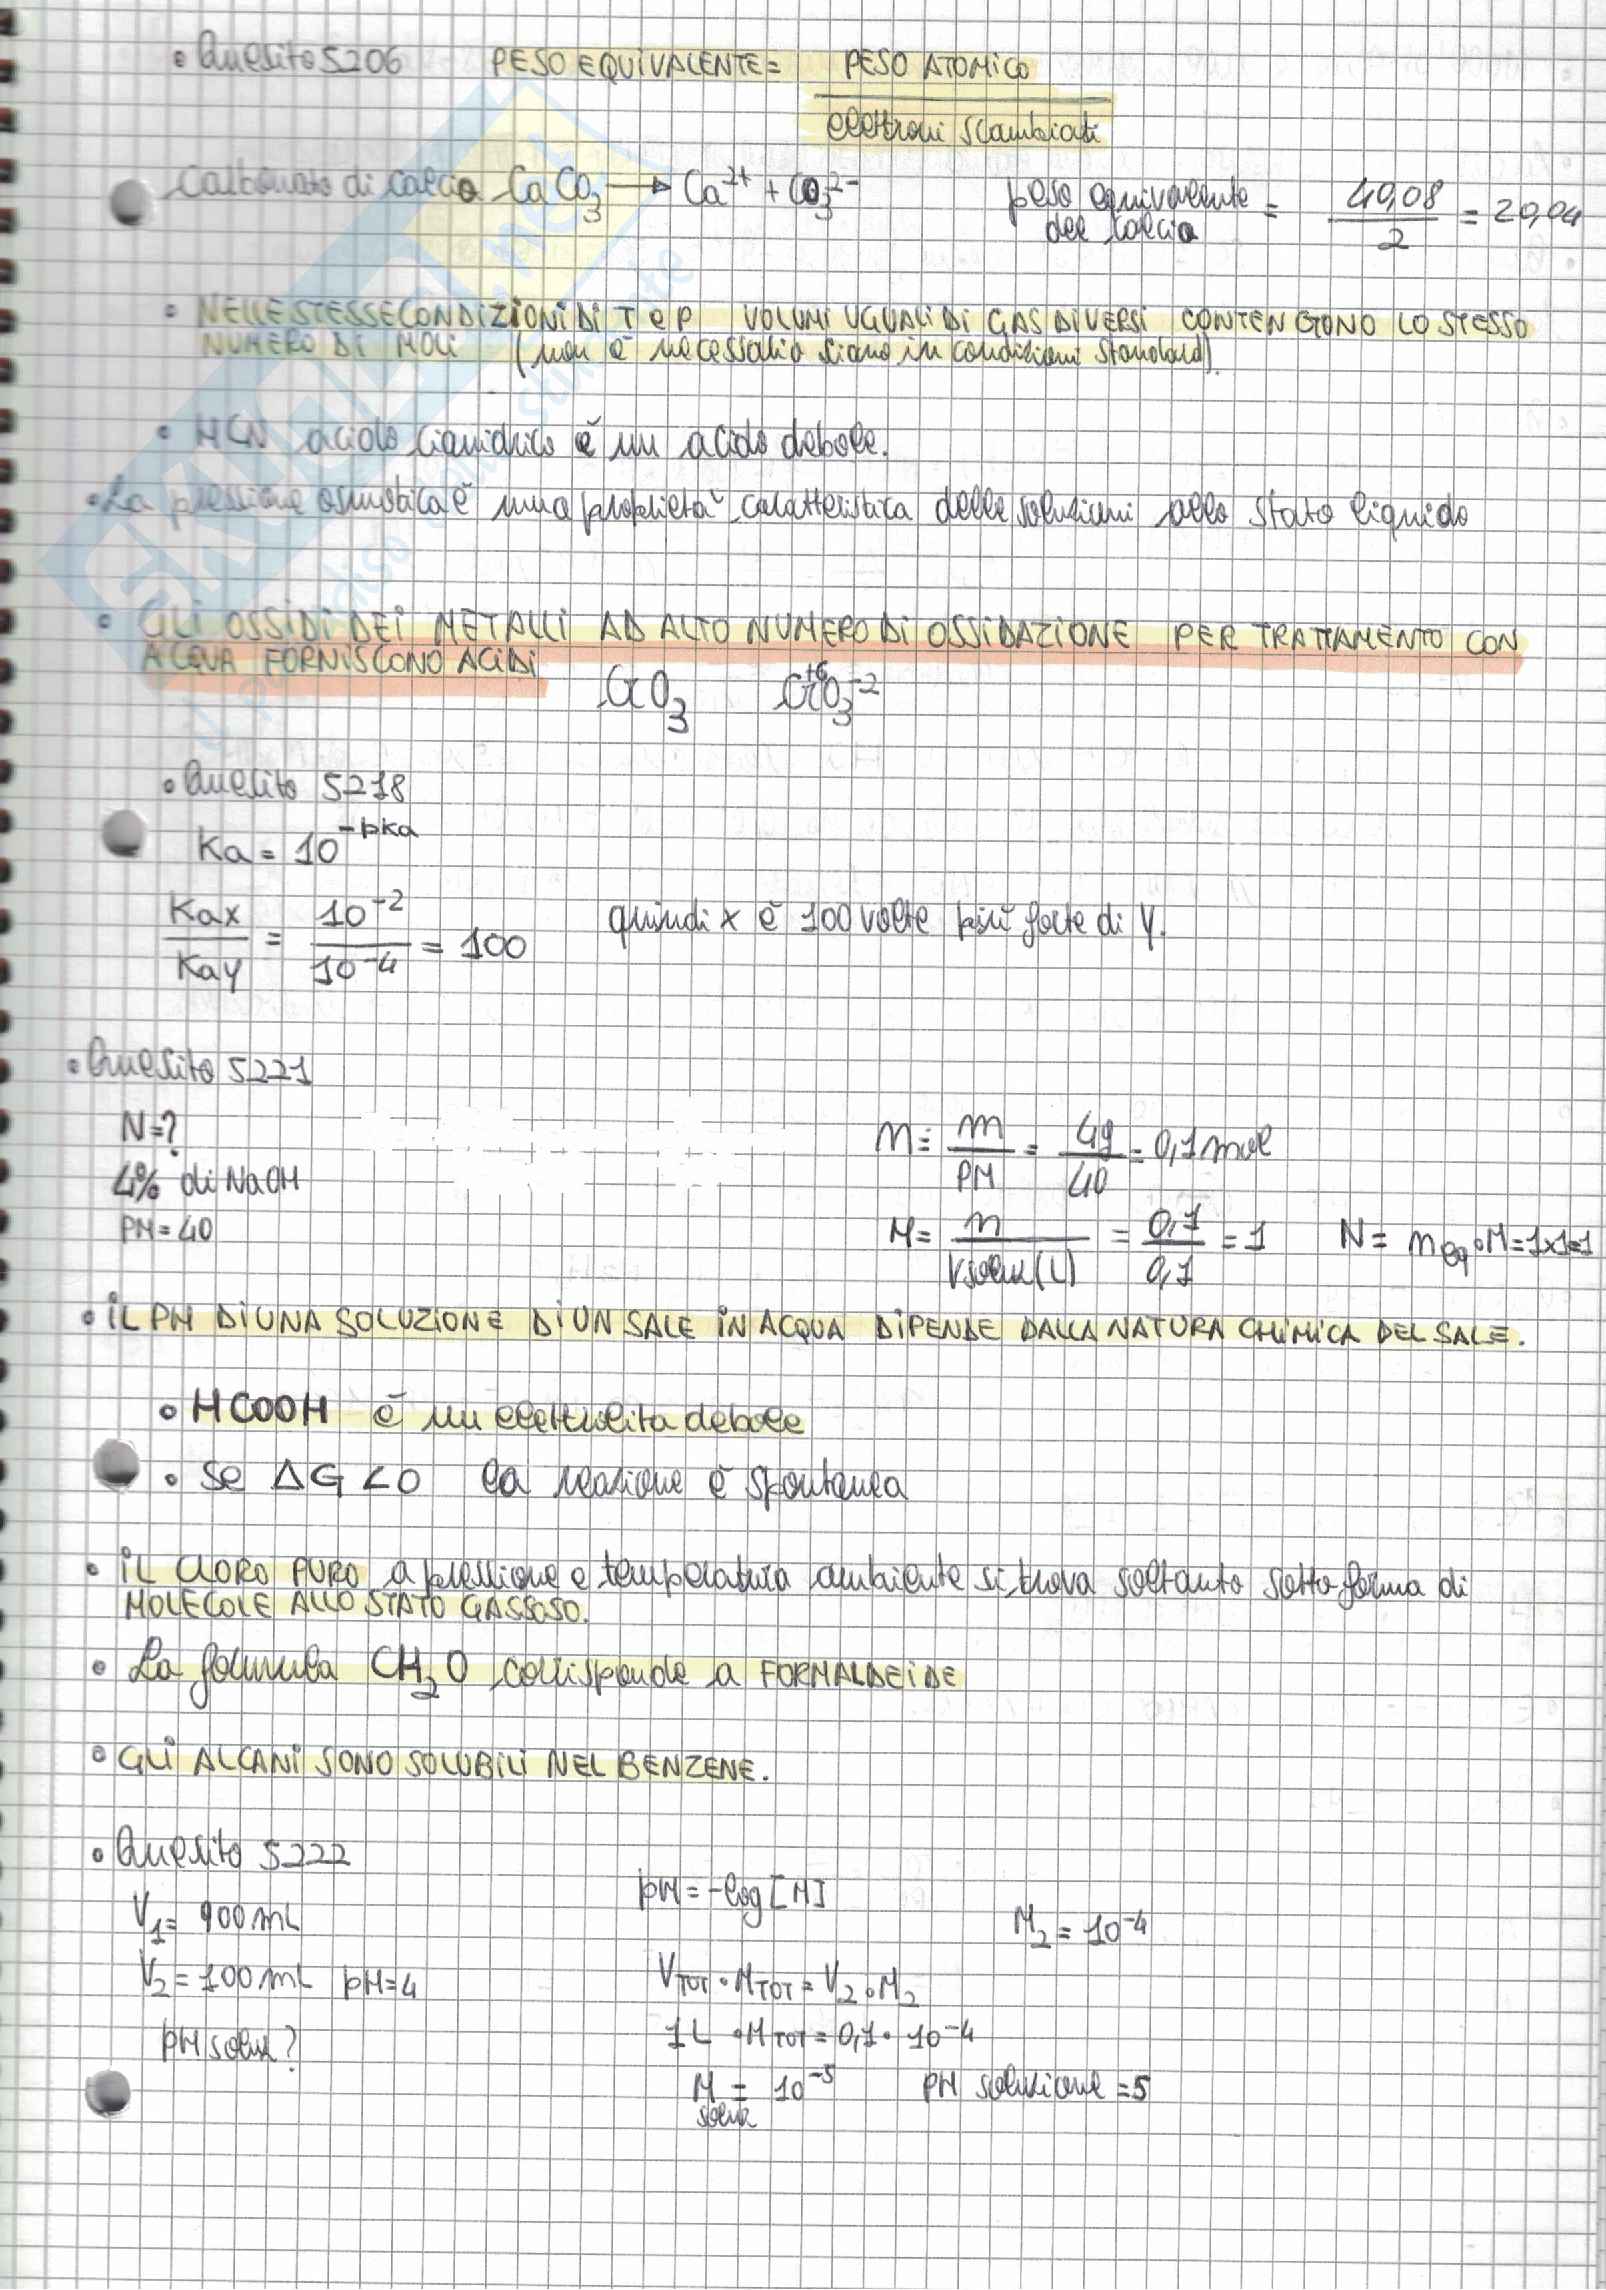 • Quesito 5206 PESO EQUIVALENTE = PESO ATOMICO / elettroni scambiati
Carbonato di calcio CaCO₃ → Ca²⁺ + CO₃²⁻ peso equivalente del calcio = 40,08 / 2 = 20,04
• NELLE STESSE CONDIZIONI DI T e P VOLUMI UGUALI DI GAS DIVERSI CONTENGONO LO STESSO
NUMERO DI MOLI (non è necessario siano in condizioni standard).
• HCN acido cianidrico è un acido debole.
• La pressione osmotica è una proprietà caratteristica delle soluzioni allo stato liquido
• GLI OSSIDI DEI METALLI AD ALTO NUMERO DI OSSIDAZIONE PER TRATTAMENTO CON
ACQUA FORNISCONO ACIDI
CrO₃ Cr⁺⁶O₃⁻²
• Quesito 5218
Ka = 10^-pka
Kax / Kay = 10⁻² / 10⁻⁴ = 100 quindi x è 100 volte più forte di y.
• Quesito 5221
N=?
4% di NaOH
PM = 40
n = m / PM = 4g / 40 = 0,1 mol
M = n / Vsoluz (L) = 0,1 / 0,1 = 1 N = n eq • M = 1x1=1
• IL PH DI UNA SOLUZIONE DI UN SALE IN ACQUA DIPENDE DALLA NATURA CHIMICA DEL SALE.
• HCOOH è un elettrolita debole
• Se ΔG < 0 la reazione è spontanea
• IL CLORO PURO a pressione e temperatura ambiente si trova soltanto sotto forma di
MOLECOLE ALLO STATO GASSOSO.
• La formula CH₂O corrisponde a FORMALDEIDE
• GLI ALCANI SONO SOLUBILI NEL BENZENE.
• Quesito 5222
V₁ = 900 mL pH = -log [H] M₂ = 10⁻⁴
V₂ = 100 mL pH=4 VTOT • MTOT = V₂ • M₂
pH soluz? 1L • MTOT = 0,1 • 10⁻⁴
M soluz = 10⁻⁵ pH soluzione = 5
SKUOLA.net
il paradiso dello studente